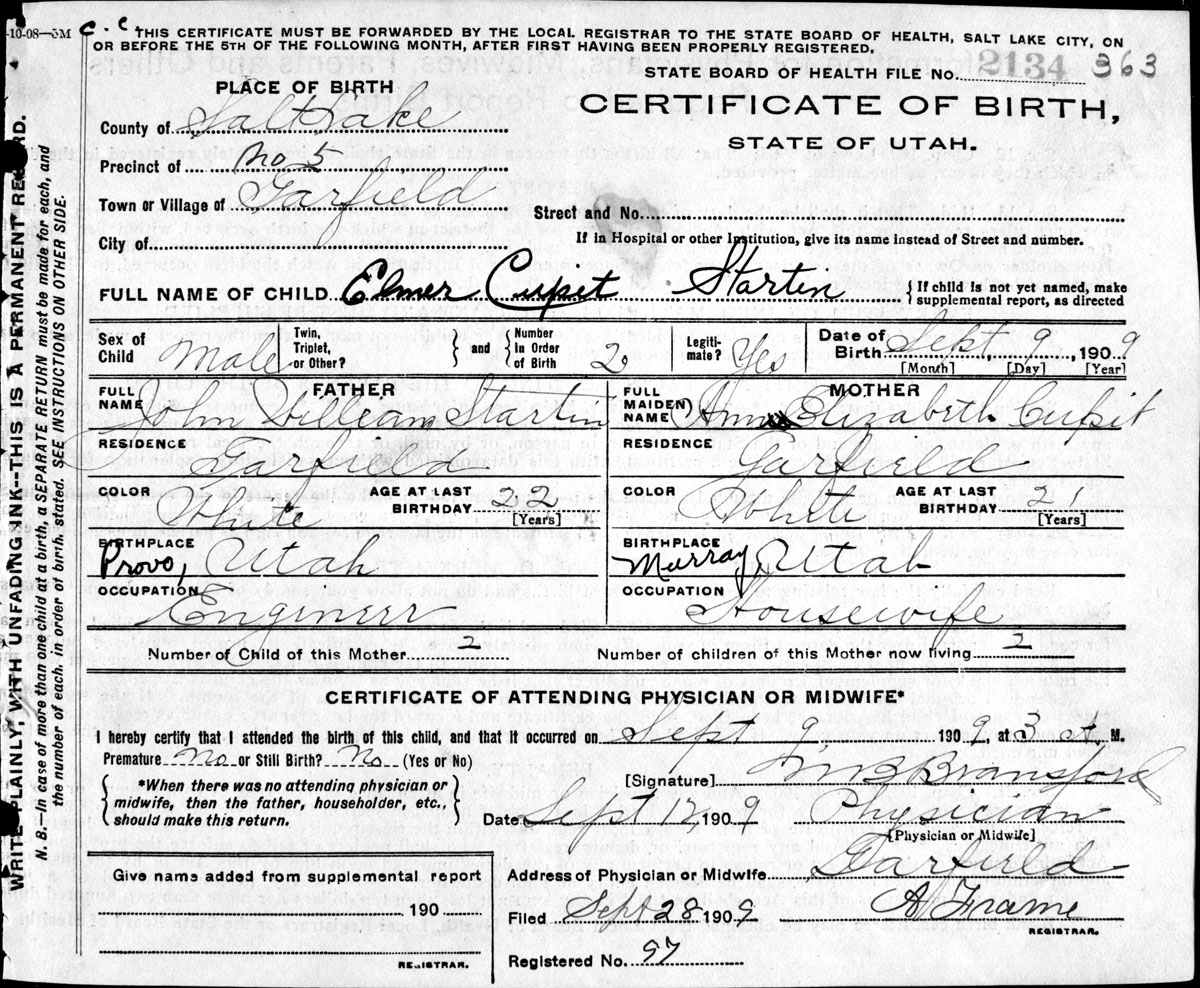 -10-08—5M
C. C. THIS CERTIFICATE MUST BE FORWARDED BY THE LOCAL REGISTRAR TO THE STATE BOARD OF HEALTH, SALT LAKE CITY, ON
OR BEFORE THE 5TH OF THE FOLLOWING MONTH, AFTER FIRST HAVING BEEN PROPERLY REGISTERED.
STATE BOARD OF HEALTH FILE No. 2134 363
PLACE OF BIRTH
CERTIFICATE OF BIRTH,
STATE OF UTAH.
County of Salt Lake
Precinct of No 5
Town or Village of Garfield
Street and No.
City of
If in Hospital or other Institution, give its name instead of Street and number.
FULL NAME OF CHILD Elmer Cuspit Startin { If child is not yet named, make
supplemental report, as directed
Sex of Child Male
Twin, Triplet, or Other? } and { Number In Order of Birth 2
Legiti- mate? Yes
Date of Birth Sept 9, 1909
[Month] [Day] [Year]
FATHER
FULL NAME John William Startin
MOTHER
FULL MAIDEN NAME Ann Elizabeth Cuspit
RESIDENCE Garfield
RESIDENCE Garfield
COLOR White AGE AT LAST BIRTHDAY 22 [Years]
COLOR White AGE AT LAST BIRTHDAY 21 [Years]
BIRTHPLACE Provo, Utah
BIRTHPLACE Murray, Utah
OCCUPATION Enginerr
OCCUPATION Housewife
Number of Child of this Mother 2
Number of children of this Mother now living 2
CERTIFICATE OF ATTENDING PHYSICIAN OR MIDWIFE*
I hereby certify that I attended the birth of this child, and that it occurred on Sept 9, 1909, at 3 a M.
Premature No or Still Birth? No (Yes or No)
{ *When there was no attending physician or
midwife, then the father, householder, etc.,
should make this return. }
[Signature] Bransford
Date Sept 12, 1909 Physician
[Physician or Midwife]
Give name added from supplemental report
190
REGISTRAR.
Address of Physician or Midwife Garfield
Filed Sept 28 1909 A Frame
REGISTRAR.
Registered No. 97
WRITE PLAINLY, WITH UNFADING INK--THIS IS A PERMANENT RECORD.
N. B. In case of more than one child at a birth, a SEPARATE RETURN must be made for each, and
the number of each. in order of birth. stated. SEE INSTRUCTIONS ON OTHER SIDE.